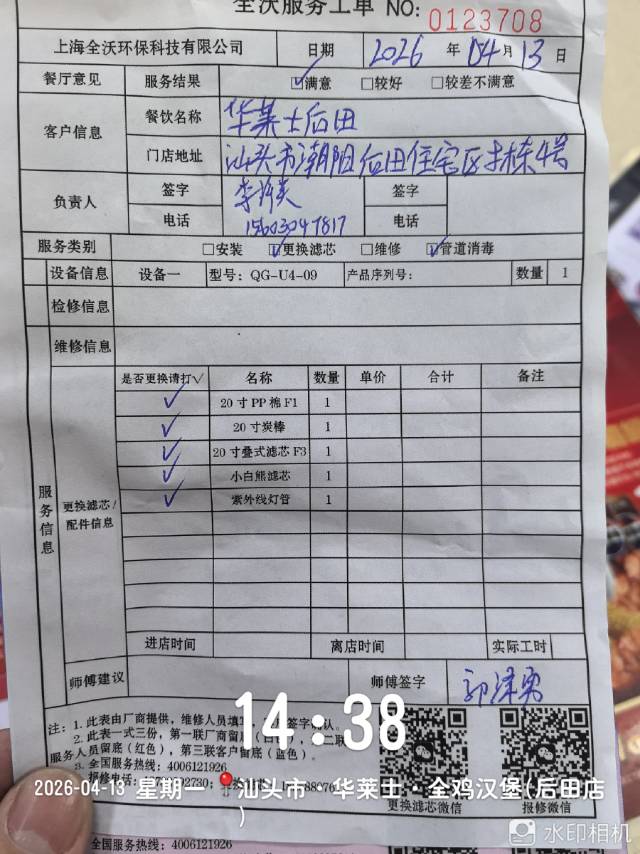 全沃服务工单 NO: 0123708
上海全沃环保科技有限公司 日期 2026 年 04 月 13 日
餐厅意见 服务结果 ☑满意 □较好 □较差不满意
客户信息 餐饮名称 华莱士后田
门店地址 汕头市潮阳后田住宅区 栋4号
负责人 签字 签字
电话 电话
服务类别 □安装 ☑更换滤芯 □维修 ☑管道消毒
设备信息 设备一 型号: QG-U4-09 产品序列号: 数量 1
检修信息
维修信息
服务信息
更换滤芯/配件信息
是否更换请打√ 名称 数量 单价 合计 备注
✓ 20寸PP棉F1 1
✓ 20寸炭棒 1
✓ 20寸叠式滤芯F3 1
✓ 小白熊滤芯 1
✓ 紫外线灯管 1
进店时间 离店时间 实际工时
师傅建议 师傅签字
注: 1. 此表由厂商提供, 维修人员填
2. 此表一式三份, 第一联厂商留
服务人员留底(红色), 第三联客户留底(蓝色)。
3. 全国服务热线: 4006121926
报修电话:
更换滤芯微信 报修微信
14:38
2026-04-13 星期一 汕头市·华莱士·全鸡汉堡(后田店
)
水印相机
全国服务热线: 4006121926